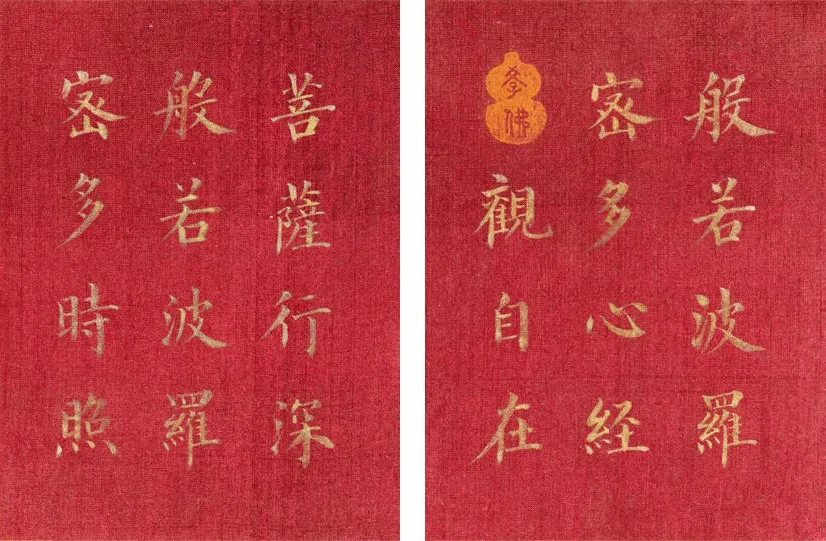 般若波羅
密多心経
観自在
菩薩行深
般若波羅
密多時照